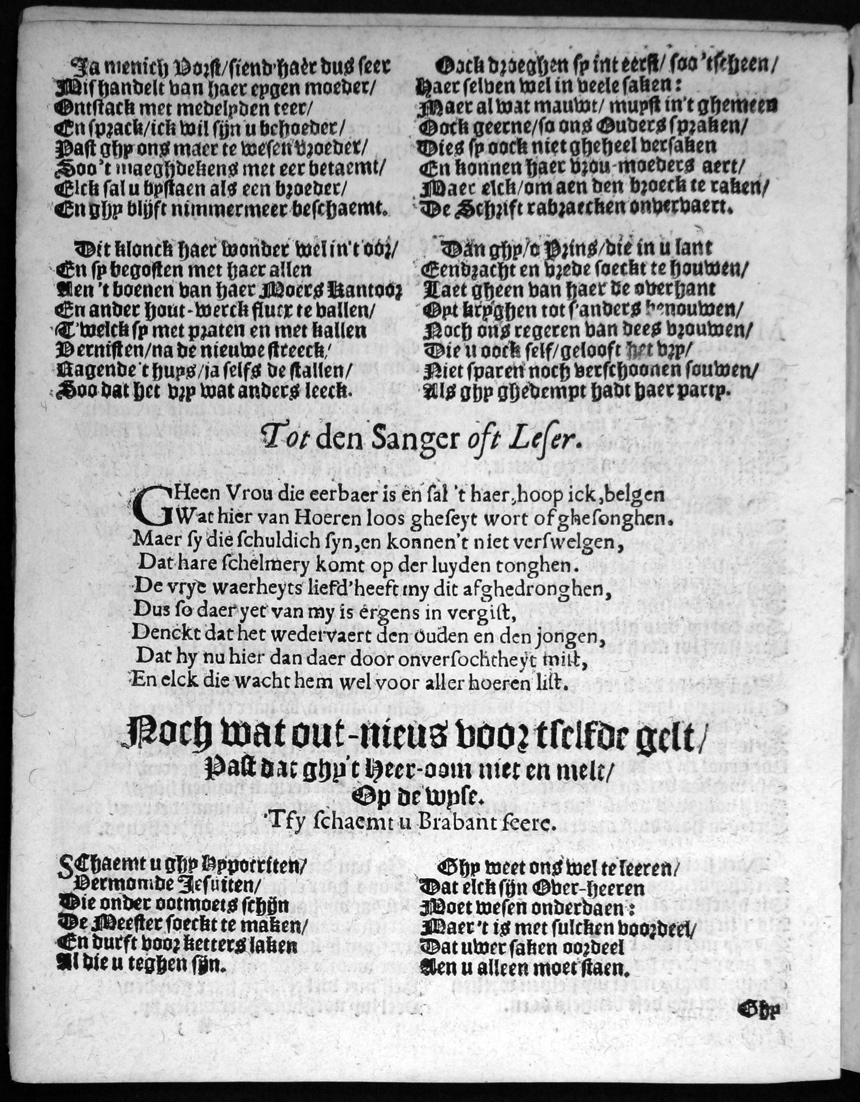 Ja menich Vorst/siend'haer dus seer
Mishandelt van haer eygen moeder/
Ontstack met medelyden teer/
En sprack/ick wil sijn u behoeder/
Past ghy ons maer te wesen vroeder/
Soo 't maeghdekens met eer betaemt/
Elck sal u bystaen als een broeder/
En ghy blijft nimmermeer beschaemt.
Dit klonck haer wonder wel in't oor/
En sy begosten met haer allen
Aen 't boenen van haer Moers Kantoor
En ander hout-werck flucx te vallen/
T'welck sy met praten en met kallen
Vernisten/na de nieuwe streeck/
Nagende't huys/ja selfs de stallen/
Soo dat het vry wat anders leeck.
Oock droeghen sy int eerst/soo 'tscheen/
Haer selven wel in veele saken:
Maer al wat mauwt/muyst in't ghemeen
Oock geerne/so ons Ouders spraken/
Dies sy oock niet gheheel versaken
En konnen haer vrou-moeders aert/
Maer elck/om aen den broeck te raken/
De Schrift rabraecken onvervaert.
Dan ghy/o Prins/die in u lant
Eendracht en vrede soeckt te houwen/
Laet gheen van haer de overhant
Oyt kryghen tot s'anders benouwen/
Noch ons regeren van dees vrouwen/
Die u oock self/gelooft het vry/
Niet sparen noch verschoonen souwen/
Als ghy ghedempt hadt haer party.
Tot den Sanger oft Leser.
GHeen Vrou die eerbaer is en sal 't haer, hoop ick, belgen
Wat hier van Hoeren loos gheseyt wort of ghesonghen.
Maer sy die schuldich syn, en konnen't niet verswelgen,
Dat hare schelmery komt op der luyden tonghen.
De vrye waerheyts liefd'heeft my dit afghedronghen,
Dus so daer yet van my is ergens in vergist,
Denckt dat het wedervaert den ouden en den jongen,
Dat hy nu hier dan daer door onversochtheyt mist,
En elck die wacht hem wel voor aller hoeren list.
Noch wat out-nieus voor tselfde gelt/
Past dat ghy't Heer-oom niet en melt/
Op de wyse.
'Tsy schaemt u Brabant seere.
SChaemt u ghy Hypocriten/
Vermomde Jesuiten/
Die onder ootmoets schijn
De Meester soeckt te maken/
En durft voor ketters laken
Al die u teghen sijn.
Ghy weet ons wel te leeren/
Dat elck sijn Over-heeren
Moet wesen onderdaen:
Maer 't is met sulcken voordeel/
Dat uwer saken oordeel
Aen u alleen moet staen.
Ghy